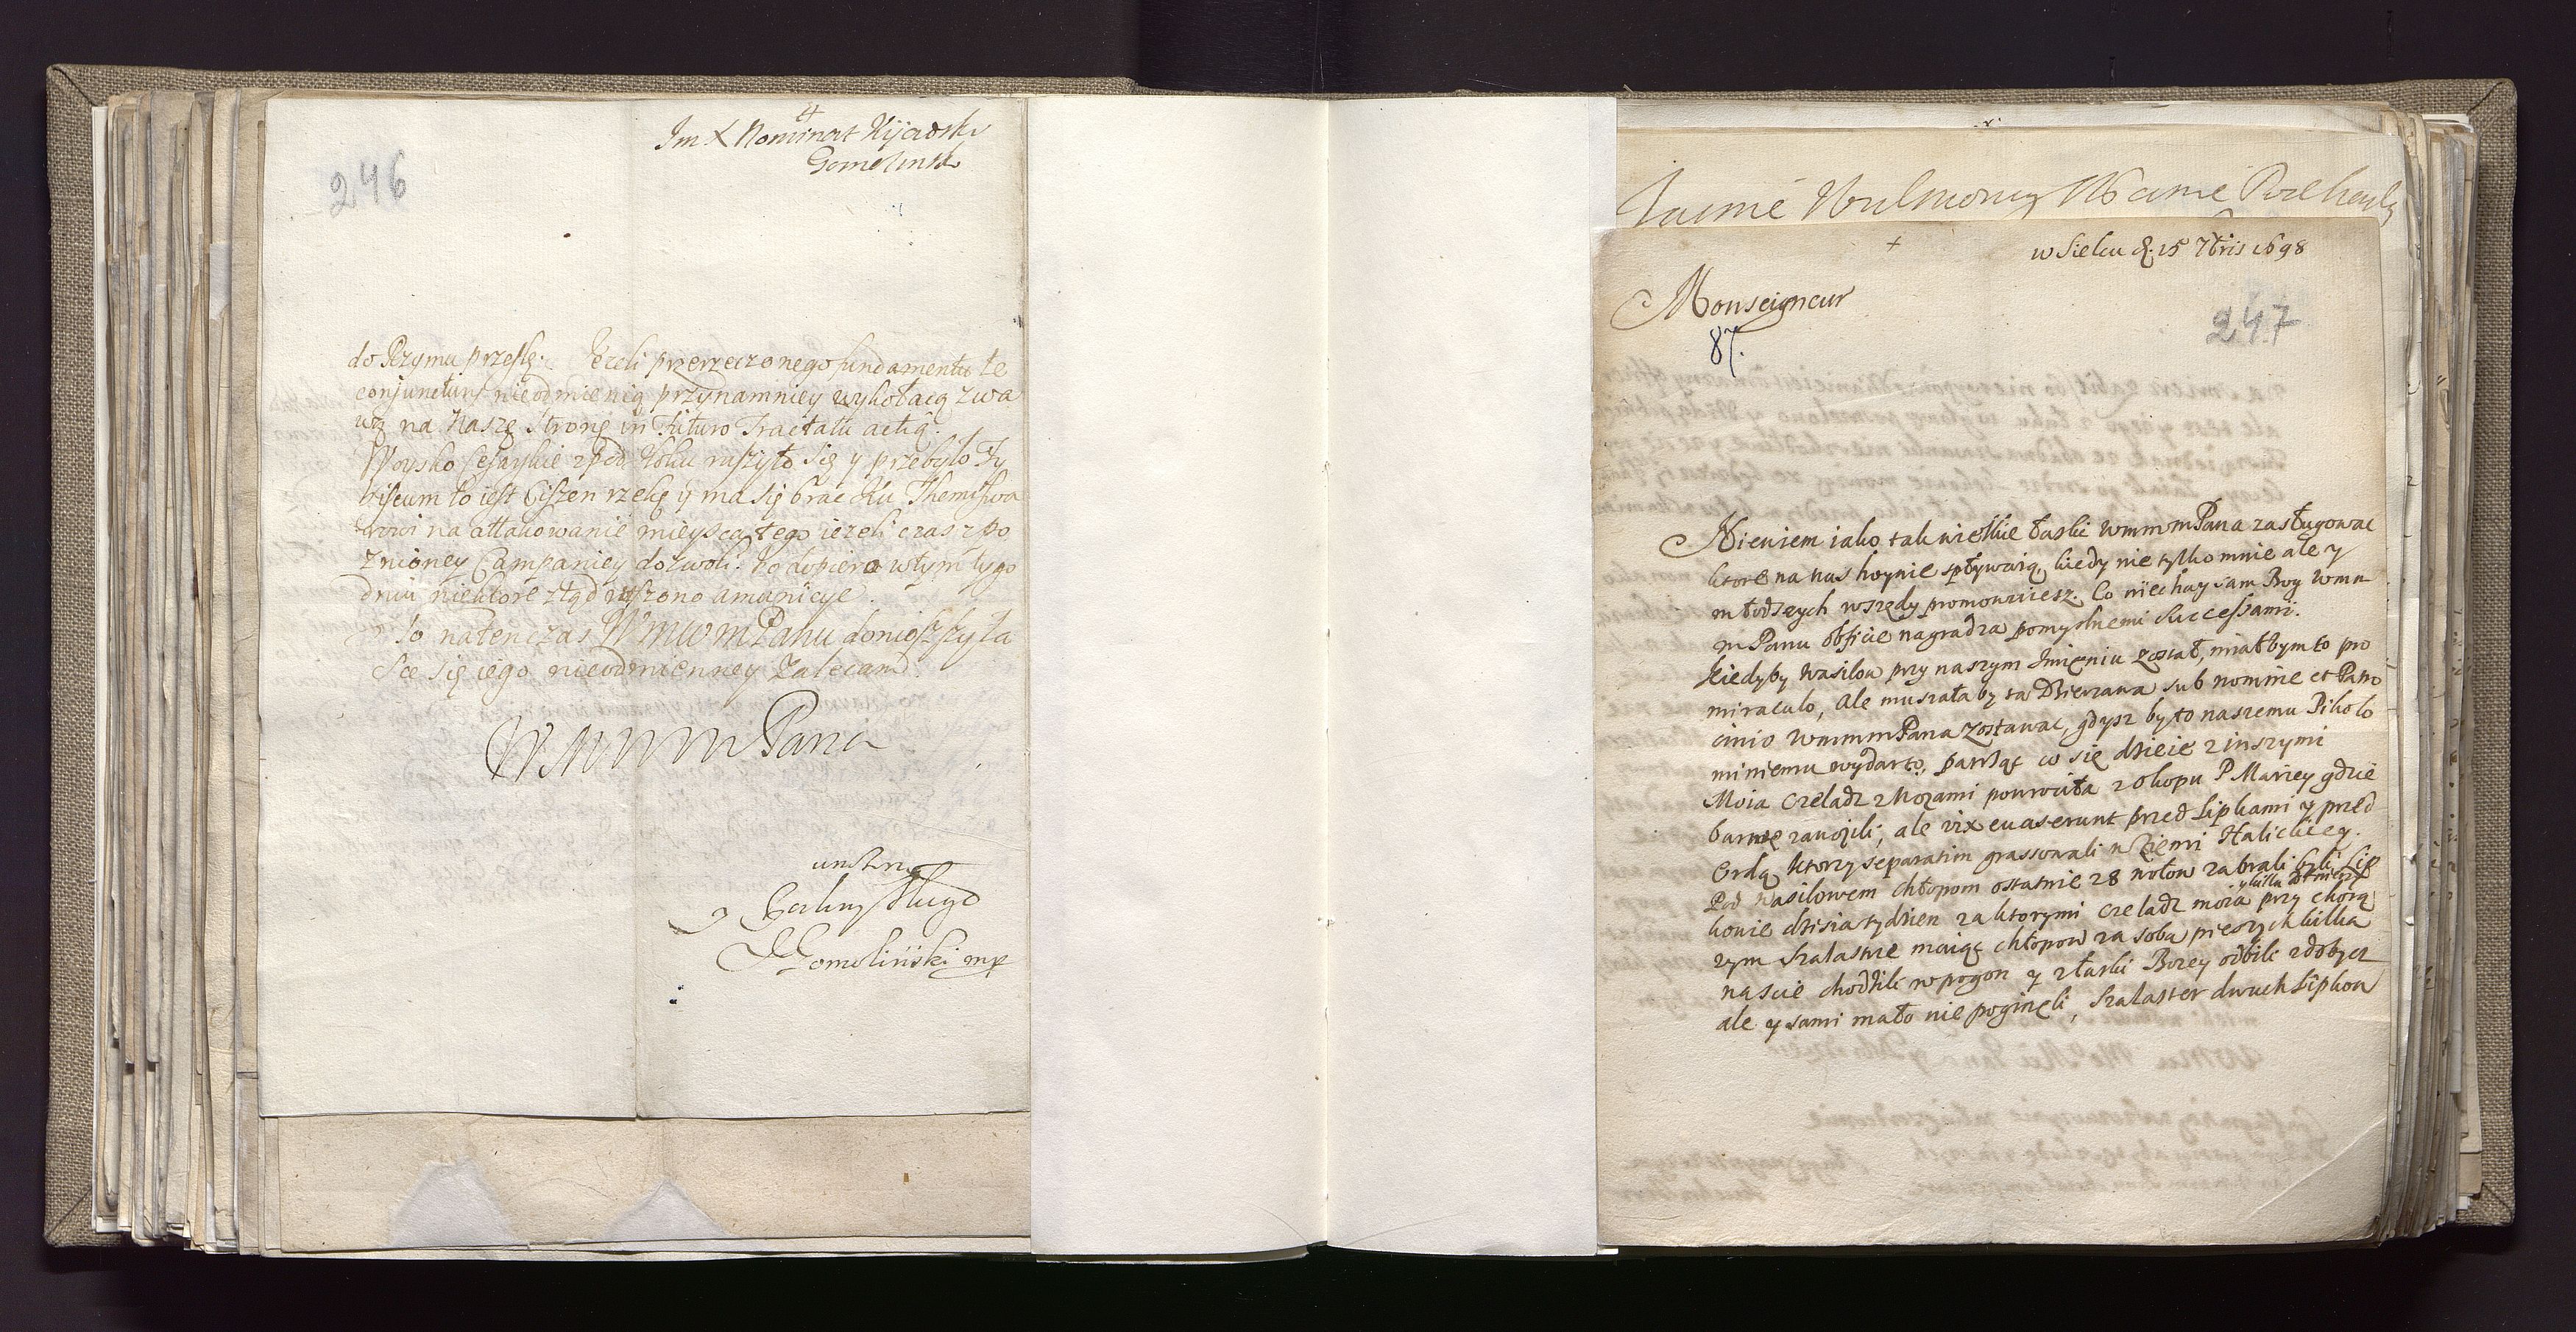 Im X Nominat Kijowski
Gomolinski
246
do Rzymu przeszłę. Jezeli przerzeczonego fundamentu te
conjunctury nieodmienią przynamniey wykołacą zwa
wą na Naszę Stronę in Futuro Tractatu actią.
Woysko Cesarskie zpod Kołu ruszyło się y przebyło Ty
biscum to iest Ciszen rzekę y ma się brac ku Themiszwa
rowi na attakowanie mieysca tego iezeli czas z po
znioney Campaniey dozwoli. Bo dopiero w tym tygo
dniu niektore ztąd ruszono amunicye.
To natenczas WMWMPanu doniosszy ła
sce się iego nieodmienney zalecam.
WMWMPana
uniżony
y Sługa
JGomoliński mp
Jasnie Wielmozny Mosci
w Sielcu d. 15 7bris 1698
Monseigneur
87.
247
Niewiem iako tak wielkie łaski WmmmPana zasługowac
ktore na nas hoynie spływaią, kiedy nie tylko mnie ale y
młodszych wszędy promowuiesz. Co niechay sam Bog Wmm
mPanu obficie nagradza pomyslnemi Successami.
Kiedyby Wasilow przy naszym Imieniu został, miałbym to pro
miraculo, ale musiała by ta Dzierzawa sub nomine et Patro
cinio WmmmPana zostawac, gdysz by to naszemu Pikolo
miniemu wydarto, patrząc co się dzieie z inszymi
Moia czeladz z Wozami powrociła z okopu P Mariey gdzie
barwę zawozili, ale vix evaserunt przed Lipkami y przed
Ordą, ktorzy separatim grassowali w Ziemi Halickiey.
Pod Wasilowem chłopom ostatnie 28 wołow zabrali byli Lip
kowie dzisia tydzien za ktorymi czeladz moia y kilka przy chorą
zym Szalastrze maiąc chłopow za sobą pieszych kilka
nascie chodzili w pogon y z łaski Bozey odbili zdobycz
ale y sami mało nie poginęli, Szalaster dwuch Lipkow